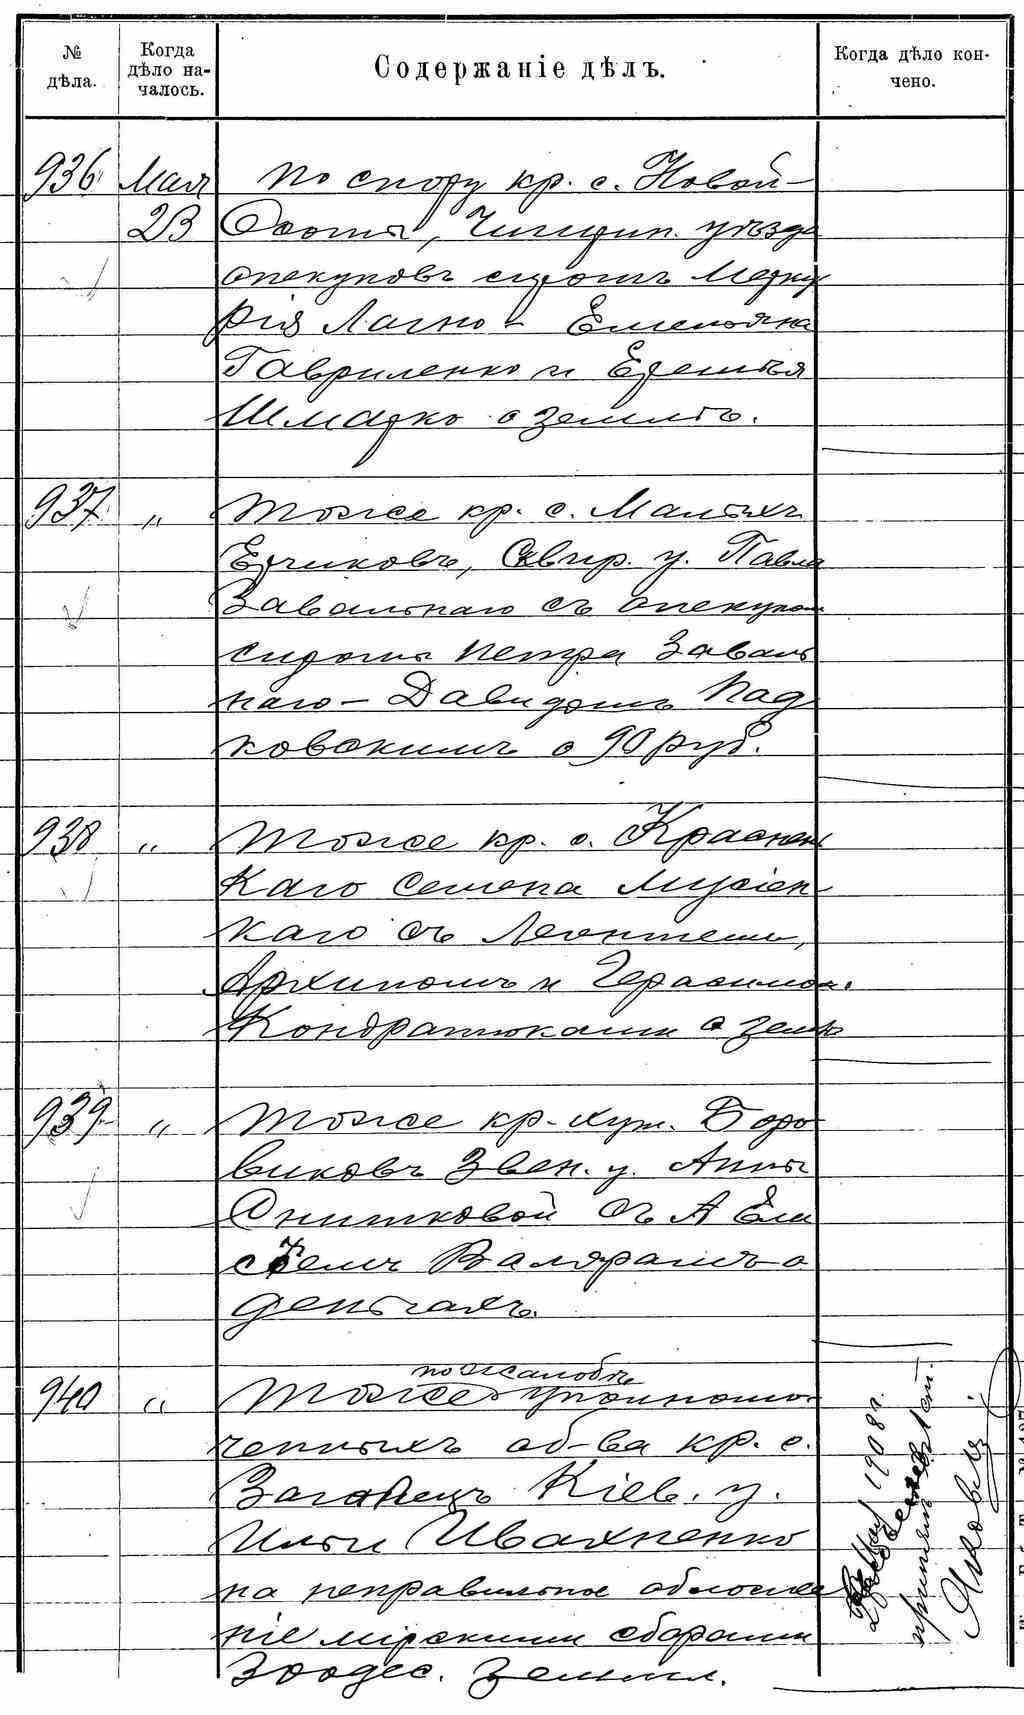 № дѣла. Когда дѣло началось. Содержаніе дѣлъ. Когда дѣло кончено.
936 Мая По спору кр. с. Новой-
23 Осоты, Чигирин. уѣзда
опекуновъ сиротъ Мерку
рія Лагно - Емельяна
Гавриленко и Еремѣя
Шмарко о землѣ.
937 „ Тоже кр. с. Малыхъ
Ерчиковъ, Сквир. у. Павла
Завальнаго съ опекуном
сироты Петра Заваль
наго - Давидомъ Пад
ковскимъ о 90 руб.
938 „ Тоже кр. с. Краснень
каго Семена Мусіен
каго съ Леонтіемъ,
Архипомъ и Герасимом.
Кондратюками о землѣ
939 „ Тоже кр. хут. Боро
виковъ Звен. у. Анны
Снитковой съ А
Валяромъ о
деньгахъ.
по жалобѣ
940 „ Тоже упомномо
ченныхъ об-ва кр. с.
Кіев. у.
Ильи Ивахненко
на неправильное обложе
ніе мірскими сборами
300 дес. земли.
1908 г.